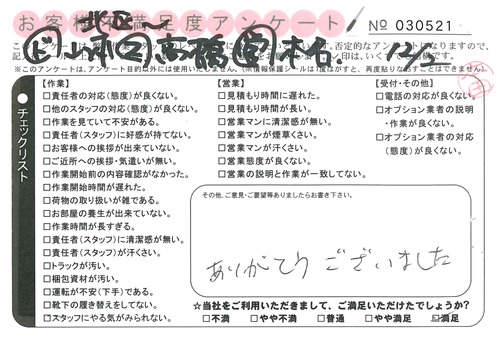 お客様不満足度アンケート
No 030521
北区
高橋
本名
このアンケートは
否定的なアンケートになりますので、
※このアンケートは、アンケート目的以外には使用いたしません。(※情報保護シールは1度はがすと、再度貼りなおすことはできません)
チェックリスト
【作業】
□責任者の対応(態度)が良くない。
□他のスタッフの対応(態度)が良くない。
□作業を見ていて不安がある。
□責任者(スタッフ)に好感が持てない。
□お客様への挨拶が出来ていない。
□ご近所への挨拶・気遣いが無い。
□作業開始前の内容確認がなかった。
□作業開始時間が遅れた。
□荷物の取り扱いが雑である。
□お部屋の養生が出来ていない。
□作業時間が長すぎる。
□責任者(スタッフ)に清潔感が無い。
□責任者(スタッフ)が汗くさい。
□トラックが汚い。
□梱包資材が汚い。
□運転が不安(下手)である。
□靴下の履き替えをしてない。
□スタッフにやる気がみられない。
【営業】
□見積もり時間に遅れた。
□見積もり時間が長い。
□営業マンに清潔感が無い。
□営業マンが煙草くさい。
□営業マンが汗くさい。
□営業態度が良くない。
□営業の説明と作業が一致してない。
【受付・その他】
□電話の対応が良くない。
□オプション業者の説明
・作業が良くない。
□オプション業者の対応
(態度)が良くない。
その他、ご意見・ご要望等ありましたらお書き下さい。
ありがとうございました
☆当社をご利用いただきまして、ご満足いただけたでしょうか?
□不満 □やや不満 □普通 □やや満足 ☑満足